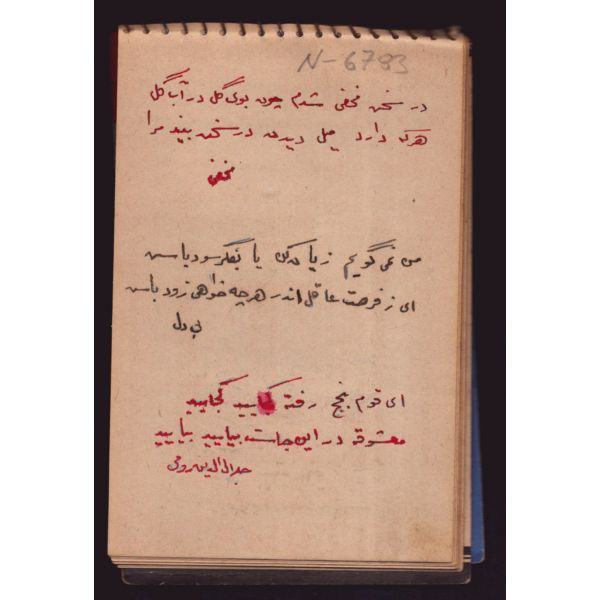 N-6793
در سخن مخفی شدم چون بوی گل در آب گل
هرکه دارد میل دیدن در سخن بیند مرا
مخفی
من نمی گویم زیان کن یا بفکر سود باش
ای ز فرصت عاقل اندر هرچه خواهی زود باش
بی دل
ای قوم بحج رفته کجایید
معشوقه در این جاست بیایید بیایید
جلال الدین رومی